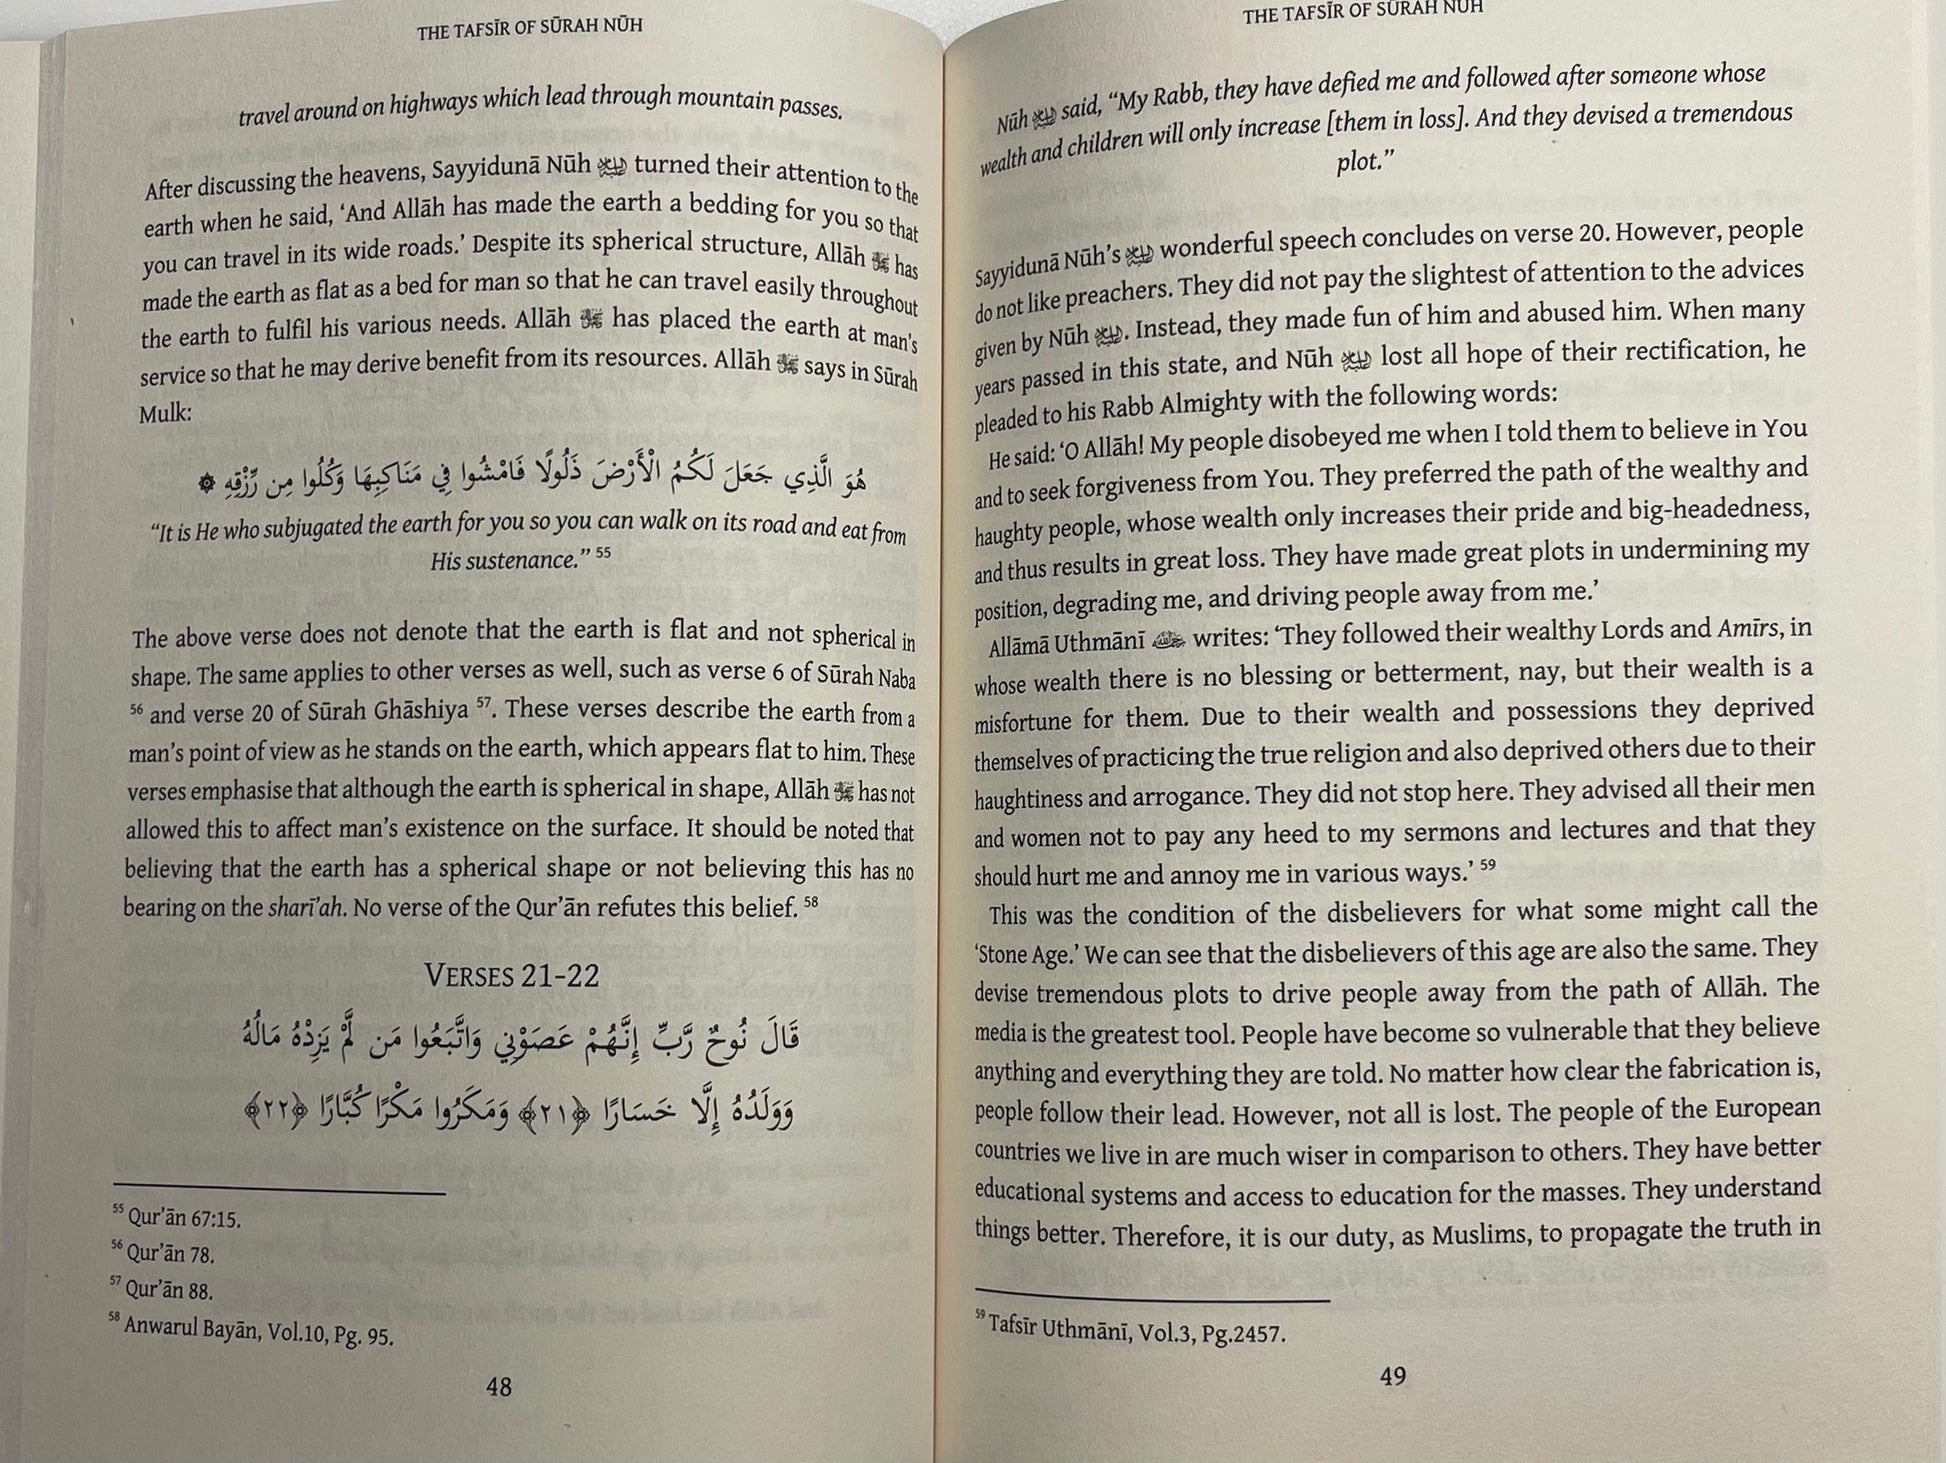 THE TAFSĪR OF SŪRAH NŪH
travel around on highways which lead through mountain passes.
After discussing the heavens, Sayyidunā Nūh عليه السلام turned their attention to the
earth when he said, ‘And Allāh has made the earth a bedding for you so that
you can travel in its wide roads.’ Despite its spherical structure, Allāh ﷻ has
made the earth as flat as a bed for man so that he can travel easily throughout
the earth to fulfil his various needs. Allāh ﷻ has placed the earth at man's
service so that he may derive benefit from its resources. Allāh ﷻ says in Sūrah
Mulk:
هُوَ الَّذِي جَعَلَ لَكُمُ الْأَرْضَ ذَلُولًا فَامْشُوا فِي مَنَاكِبِهَا وَكُلُوا مِن رِّزْقِهِ ۞
“It is He who subjugated the earth for you so you can walk on its road and eat from
His sustenance.” 55
The above verse does not denote that the earth is flat and not spherical in
shape. The same applies to other verses as well, such as verse 6 of Sūrah Naba
56 and verse 20 of Sūrah Ghāshiya 57. These verses describe the earth from a
man’s point of view as he stands on the earth, which appears flat to him. These
verses emphasise that although the earth is spherical in shape, Allāh ﷻ has not
allowed this to affect man’s existence on the surface. It should be noted that
believing that the earth has a spherical shape or not believing this has no
bearing on the sharī’ah. No verse of the Qur’ān refutes this belief. 58
VERSES 21-22
قَالَ نُوحٌ رَّبِّ إِنَّهُمْ عَصَوْنِي وَاتَّبَعُوا مَن لَّمْ يَزِدْهُ مَالُهُ
وَوَلَدُهُ إِلَّا خَسَارًا ﴿٢١﴾ وَمَكَرُوا مَكْرًا كُبَّارًا ﴿٢٢﴾
55 Qur’ān 67:15.
56 Qur’ān 78.
57 Qur’ān 88.
58 Anwarul Bayān, Vol.10, Pg. 95.
48
THE TAFSĪR OF SŪRAH NŪH
Nūh عليه السلام said, “My Rabb, they have defied me and followed after someone whose
wealth and children will only increase [them in loss]. And they devised a tremendous
plot.”
Sayyidunā Nūh’s عليه السلام wonderful speech concludes on verse 20. However, people
do not like preachers. They did not pay the slightest of attention to the advices
given by Nūh عليه السلام. Instead, they made fun of him and abused him. When many
years passed in this state, and Nūh عليه السلام lost all hope of their rectification, he
pleaded to his Rabb Almighty with the following words:
He said: ‘O Allāh! My people disobeyed me when I told them to believe in You
and to seek forgiveness from You. They preferred the path of the wealthy and
haughty people, whose wealth only increases their pride and big-headedness,
and thus results in great loss. They have made great plots in undermining my
position, degrading me, and driving people away from me.’
Allāmā Uthmānī رحمه الله writes: ‘They followed their wealthy Lords and Amīrs, in
whose wealth there is no blessing or betterment, nay, but their wealth is a
misfortune for them. Due to their wealth and possessions they deprived
themselves of practicing the true religion and also deprived others due to their
haughtiness and arrogance. They did not stop here. They advised all their men
and women not to pay any heed to my sermons and lectures and that they
should hurt me and annoy me in various ways.’ 59
This was the condition of the disbelievers for what some might call the
‘Stone Age.’ We can see that the disbelievers of this age are also the same. They
devise tremendous plots to drive people away from the path of Allāh. The
media is the greatest tool. People have become so vulnerable that they believe
anything and everything they are told. No matter how clear the fabrication is,
people follow their lead. However, not all is lost. The people of the European
countries we live in are much wiser in comparison to others. They have better
educational systems and access to education for the masses. They understand
things better. Therefore, it is our duty, as Muslims, to propagate the truth in
59 Tafsīr Uthmānī, Vol.3, Pg.2457.
49